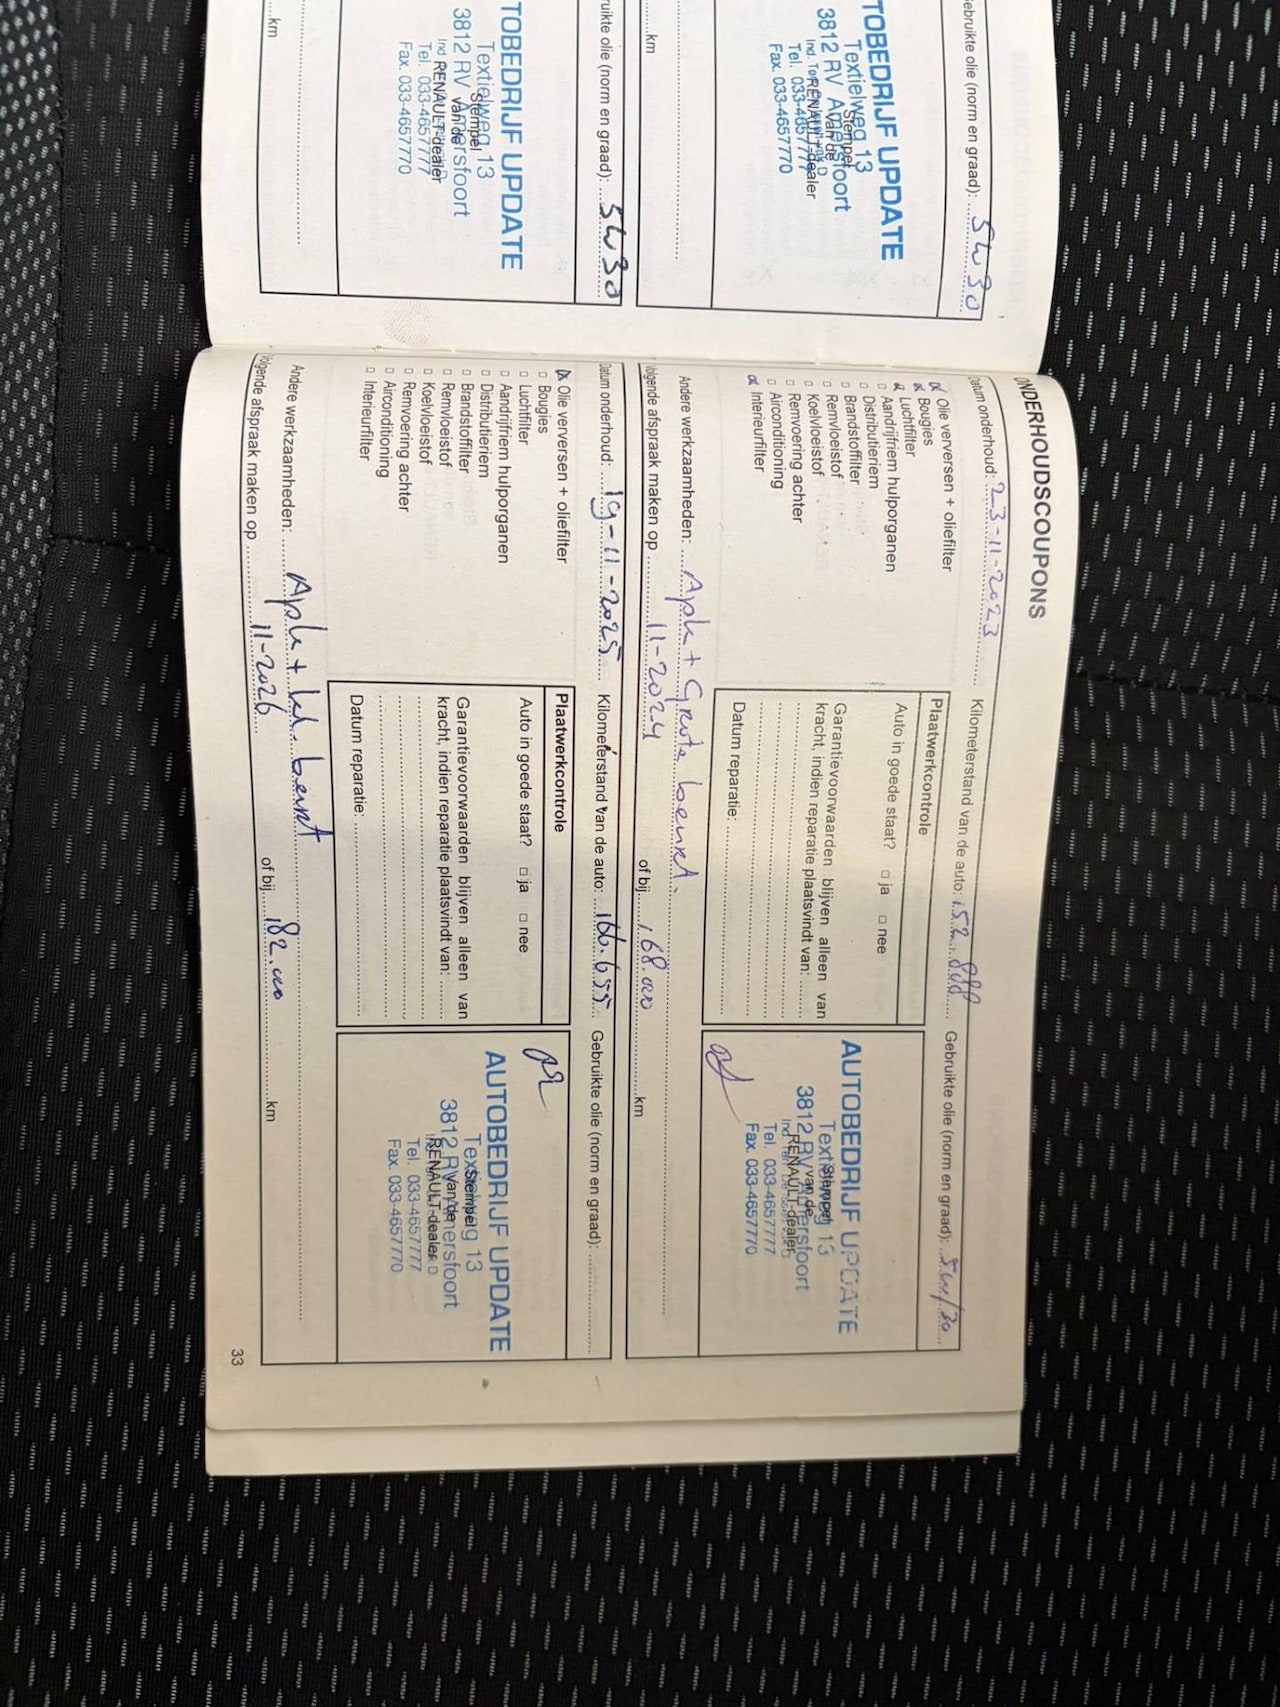 Gebruikte olie (norm en graad): 5W30
TOBEDRIJF UPDATE
Textielweg 13
3812 RV Amersfoort
Stempel
van de
RENAULT-dealer
Tel. 033-4657777
Fax. 033-4657770
km
ruikte olie (norm en graad): 5W30
TOBEDRIJF UPDATE
Textielweg 13
3812 RV Amersfoort
Stempel
van de
RENAULT-dealer
Tel. 033-4657777
Fax. 033-4657770
km
ONDERHOUDSCOUPONS
Datum onderhoud: 23-11-2023 Kilometerstand van de auto: 152.888 Gebruikte olie (norm en graad): 5W/30
Olie verversen + oliefilter
Bougies
Luchtfilter
Aandrijfriem hulporganen
Distributieriem
Brandstoffilter
Remvloeistof
Koelvloeistof
Remvoering achter
Airconditioning
Interieurfilter
Plaatwerkcontrole
Auto in goede staat? ja nee
Garantievoorwaarden blijven alleen van
kracht, indien reparatie plaatsvindt van:
Datum reparatie:
AUTOBEDRIJF UPDATE
Textielweg 13
3812 RV Amersfoort
Stempel
van de
RENAULT-dealer
Tel. 033-4657777
Fax. 033-4657770
Andere werkzaamheden: Apk + Grote beurt.
olgende afspraak maken op 11-2024 of bij 168.000 km
Datum onderhoud: 19-11-2025 Kilometerstand van de auto: 166.655 Gebruikte olie (norm en graad):
Olie verversen + oliefilter
Bougies
Luchtfilter
Aandrijfriem hulporganen
Distributieriem
Brandstoffilter
Remvloeistof
Koelvloeistof
Remvoering achter
Airconditioning
Interieurfilter
Plaatwerkcontrole
Auto in goede staat? ja nee
Garantievoorwaarden blijven alleen van
kracht, indien reparatie plaatsvindt van:
Datum reparatie:
AUTOBEDRIJF UPDATE
Textielweg 13
3812 RV Amersfoort
Stempel
van de
RENAULT-dealer
Tel. 033-4657777
Fax. 033-4657770
Andere werkzaamheden: Apk + kl. beurt
olgende afspraak maken op 11-2026 of bij 182.000 km
33